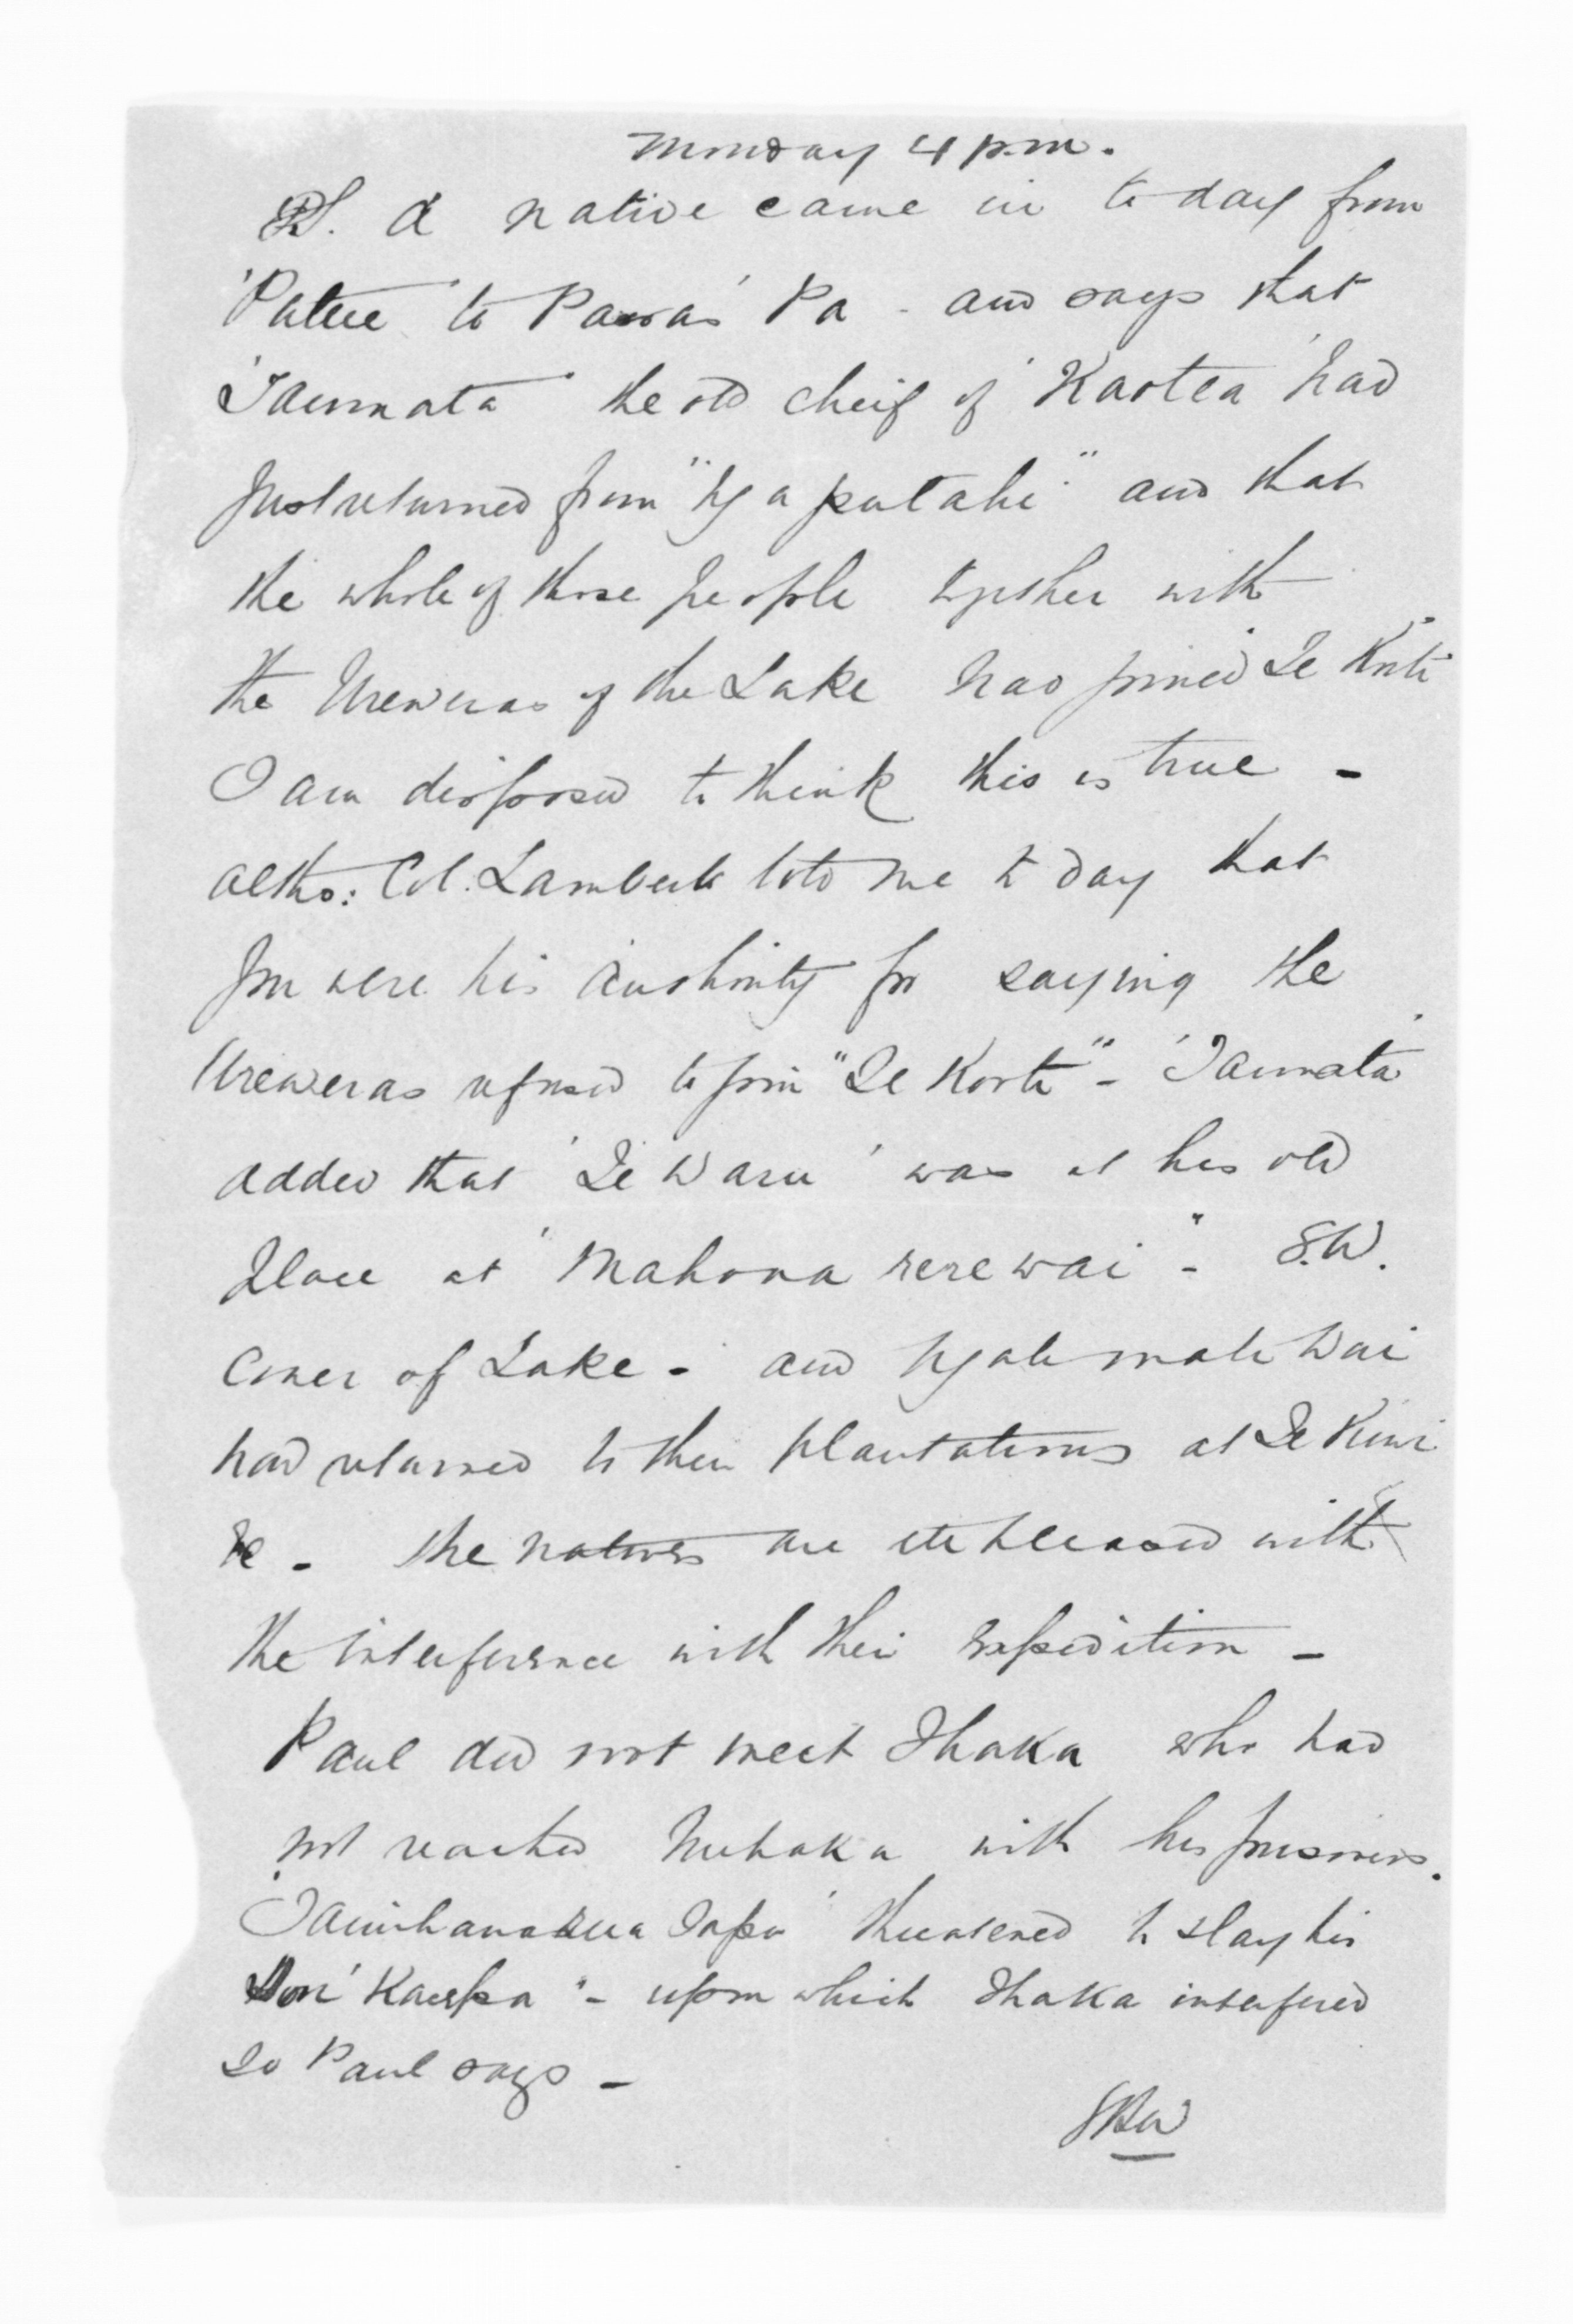 Monday 4 p.m.
P.S. A native came in to day from
'Patu te Pawas' Pa - and says that
'Taumata' the old cheif of 'Kaotea' had
just returned from "Nga putahi" and that
the whole of those people together with
the Ureweras of the Lake had joined 'Te Kuti'
I am disposed to think this is true -
altho: Col. Lambert told me to day that
you were his authority for saying the
Ureweras refused to join "Te Korti" - 'Taumata'
added that 'Te Waru' was at his old
place at 'Mahona rerewai' - S.W.
Corner of Lake - and Ngati mate wai
had returned to their plantations at Te Kiwi
&c - The natives are pleased with
the interference with their expedition -
Paul did not meet Ihaka who had
not reached Nuhaka with his prisoners.
Tapu' threatened to slay his
Son 'Kaipa' - upon which Ihaka interfered
so Paul says -